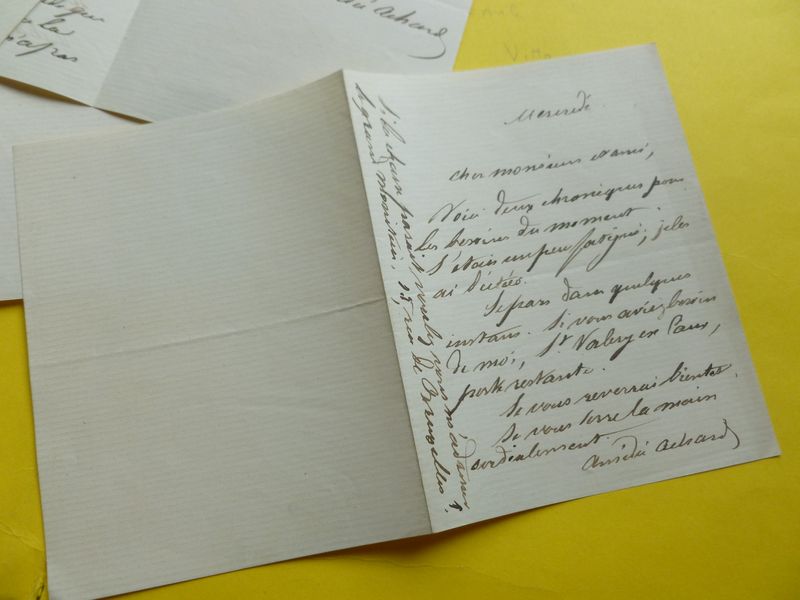 Mercredi.
cher monsieur et ami,
Voici deux chroniques pour
les besoins du moment.
J'étais un peu fatigué; je les
ai dictées.
Je pars dans quelques
instans. Si vous aviez besoin
de moi, St Valery en Caux,
poste restante.
Je vous reverrai bientot
Je vous serre la main
cordialement.
Amédée Achard
Si la chose parait voulez vous m'adresser
le grand moniteur, 15, rue de Bruxelles.
Achard